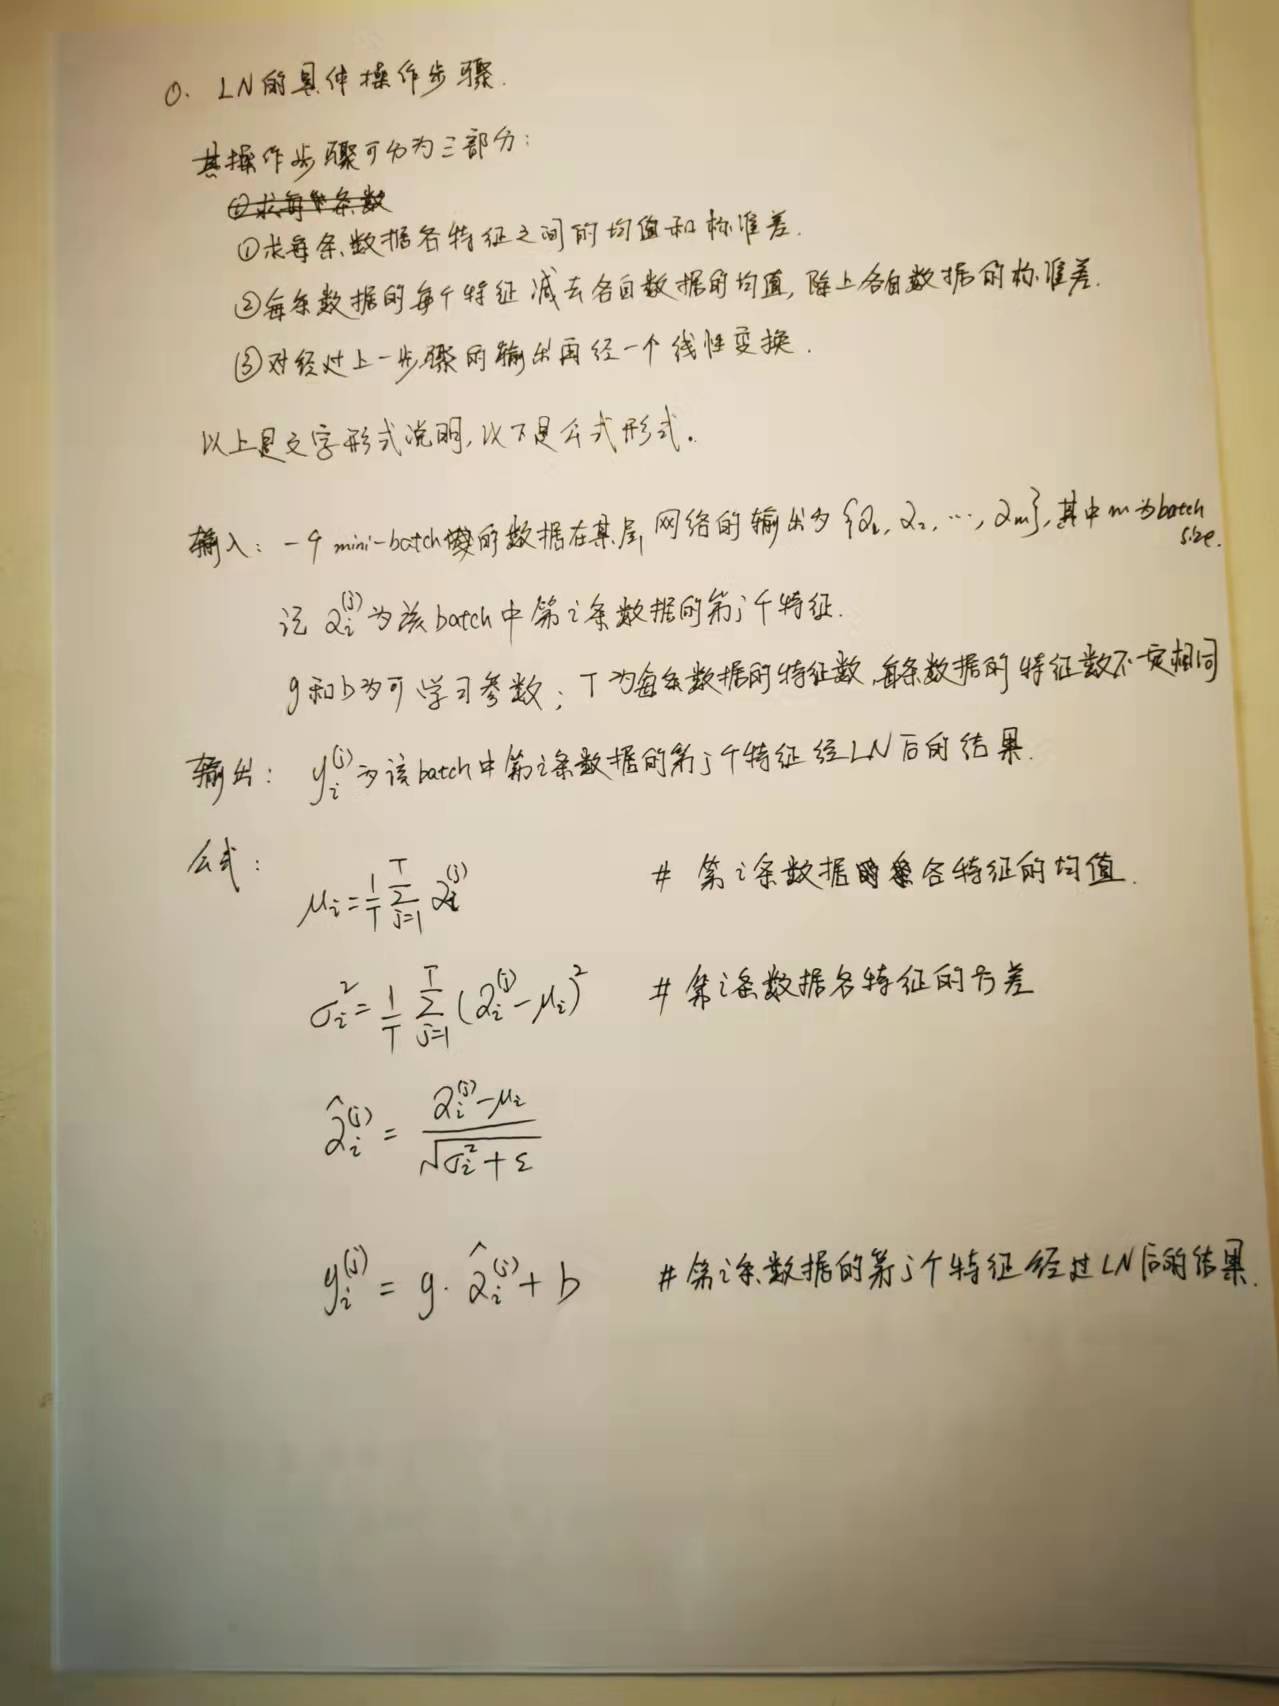 0. LN的具体操作步骤.
其操作步骤可分为三部分:
①求每条数据各特征之间的均值和标准差.
②每条数据的每个特征减去各自数据的均值, 除上各自数据的标准差.
③对经过上一步骤的输出再经一个线性变换.
以上是文字形式说明, 以下是公式形式。
输入: 一个mini-batch的数据在某层网络的输出为{α₁, α₂, ⋯, αm}, 其中m为batch
size.
记 αᵢ⁽ʲ⁾为该batch中第i条数据的第j个特征.
g和b为可学习参数; T为每条数据的特征数, 每条数据的特征数不一定相同
输出: yᵢ⁽ʲ⁾为该batch中第i条数据的第j个特征经LN后的结果.
公式:
μᵢ = 1/T ∑_{j=1}^{T} αᵢ⁽ʲ⁾ # 第i条数据各特征的均值.
σᵢ² = 1/T ∑_{j=1}^{T} (αᵢ⁽ʲ⁾ - μᵢ)² # 第i条数据各特征的方差
α̂ᵢ⁽ʲ⁾ = (αᵢ⁽ʲ⁾ - μᵢ) / √(σᵢ² + ε)
yᵢ⁽ʲ⁾ = g · α̂ᵢ⁽ʲ⁾ + b # 第i条数据的第j个特征经过LN后的结果.